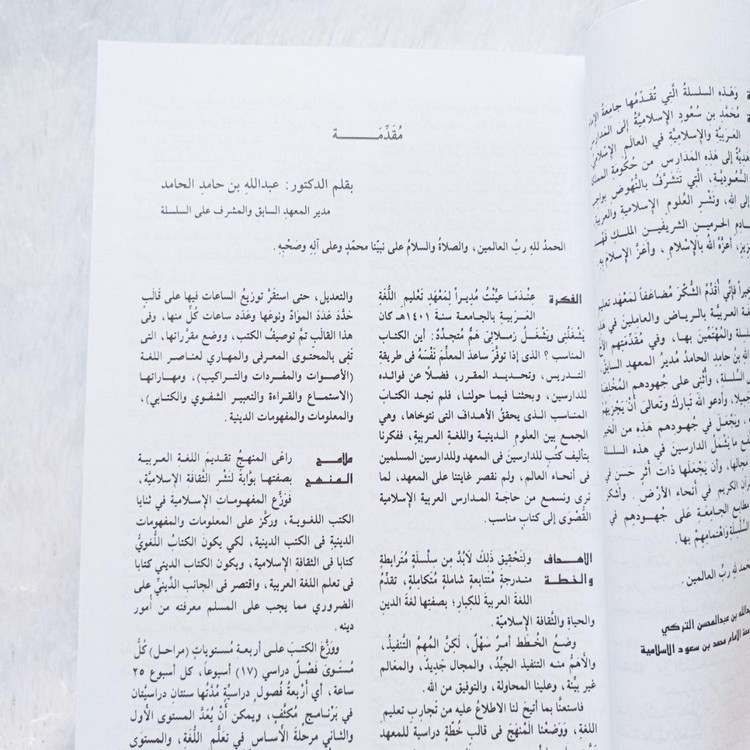 مُقَدِّمَـــــــة
بقلم الدكتور: عبدالله بن حامد الحامد
مدير المعهد السابق والمشرف على السلسلة
الحمدُ للهِ ربِّ العالمين، والصلاةُ والسلامُ على نبيِّنا محمّدٍ وعلى آلهِ وصَحْبِهِ.
الفكرة عِنْدَمَا عيِّنْتُ مُدِيراً لِمَعْهَدِ تَعْلِيمِ اللُّغَةِ
العَرَبيةِ بالجامعةِ سنةَ ١٤٠١هـ كان
يَشْغَلُنى ويَشْغَلُ زملائِىَ هَمٌّ متجدِّدٌ: أين الكتابُ
المناسب؟ الذى إذا توفَّر ساعدَ المعلِّمَ نَفْسَهُ فى طريقةِ
التدريسِ، وتحديدِ المقررِ، فضلاً عن فوائده
للدارسين، وبحثنا فيما حولنا، فلم نجد الكتابَ
المناسبَ الذى يحققُ الأهدافَ التى نتوخاها، وهي
الجمع بين العلومِ الدينيةِ واللغةِ العربيةِ، ففكرنا
بتأليفِ كتُبٍ للدارسين فى المعهد وللدارسين المسلمين
فى أنحاء العالم، ولم نقصر غايتنا على المعهد، لما
نرى ونسمع من حاجة المدارس العربية الإسلامية
القُصْوَى إلى كتابٍ مناسب.
الأهداف ولتحقيقِ ذَلِكَ لاَبُدَّ مِن سِلْسِلَةٍ مُتَرابطةٍ
والخطة متدرجةٍ مُتَتابعةٍ شاملةٍ مُتكامِلَةٍ، تقدِّمُ
اللغةَ العربيةَ للكِبارِ؛ بصفتها لغةَ الدينِ
والحياةِ والثَّقافةِ الإسلاميَّةِ.
وضعُ الخُطَط أمرٌ سَهْلٌ، لَكِنَّ المُهِمَّ التَّنفيذُ،
والأهَمُّ منه التنفيذ الجيِّدُ، والمجال جَديدٌ، والمعَالم
غير بيِّنة، وعلينا المحاولة، والتوفيق من الله.
فاستعنَّا بما أُتيحَ لنا الاطلاعُ عليه من تجاربِ تعليمِ
اللغةِ، ووَضَعْنا المَنْهَجَ فى قالبِ خُطَّةٍ دراسية للمعهد
والتعديل، حتى استقرَّ توزيعُ الساعات فيها على قَالَبٍ
حَدَّدَ عَدَدَ الموادِّ ونوعَها وعَدَد ساعات كُلٍّ منها، وفى
هذا القالَب تمَّ توصيفُ الكتب، ووضع مقرَّراتها، التى
تَفِى بالمحتوى المعرفى والمهاري لعناصر اللغة
(الأصوات والمفردات والتراكيب)، ومهاراتها
(الاستماع والقراءة والتعبير الشفوي والكتابي)،
والمعلومات والمفهومات الدينية.
ملامح راعَى المنهجُ تقديمَ اللغة العربية
المنهج بصفتها بوَّابةً لنَشْر الثَّقافةِ الإسلاميَّة،
فوَزَّع المفهومات الإسلامية في ثنايا
الكتب اللغوية، وركَّز على المعلومات والمفهومات
الدينيةِ في الكتب الدينية، لكي يكونَ الكتابُ اللُّغويُّ
كتابا فى الثقافةِ الإسلاميةِ، ويكون الكتاب الديني كتابا
فى تعلم اللغة العربية، واقتصر فى الجانب الدِّينيِّ على
الضرورى مما يجب على المسلم معرفته من أمور
دينه.
ووَزَّعَ الكتبَ على أربعةِ مُستوياتٍ (مراحل) كُلُّ
مُستَوىً فَصْلٌ دراسي (١٧) أسبوعاً، كل أسبوع ٢٥
ساعة، أي أربعةُ فُصول دراسيَّةٍ مُدَّتُها سنتان دراسيَّتان
في بَرْنامجٍ مُكثَّفٍ، ويمكن أنْ يُعَدَّ المستوى الأول
والثاني مرحلةَ الأساسِ في تعلُّمِ اللُّغةِ، والمستوى
وَهَذِهِ السلسلةُ الَّتي تُقدِّمُها جامعةُ
مُحَمَّد بن سُعُودٍ الإسلاميَّةُ إلى
العَرَبيَّةِ والإسلاميَّةِ في العالمِ
إلى هَذِهِ المَدَارسِ من حكُومَةِ
السُّعُوديَّةِ، الَّتي تَتَشَرَّفُ بالنُّهُوضِ
إلى الله، ونَشْرِ العُلُومِ الإسلاميةِ
الحرمين الشريفين الملك
أعزَّهُ الله بالإسلامِ، وأعَزَّ الإسلامَ
فإنِّي أقدِّمُ الشُّكْرَ مُضَاعَفاً لمَعْهَدِ تعليمِ
العَرَبيَّةِ بالرياضِ والعاملين في
والمُهْتَمِّينَ بها، وفي مُقَدِّمَتِهِم
بن حامِدٍ الحامِدُ مُديرُ المعهدِ
السِّلسلةِ، وأُثْنِي على جُهُودهم
وأدعو الله تبارَكَ وتعالَى أَنْ
ويَجْعَلَ في جُهُودِهم هَذِهِ من
ما يَشْمَلُ الدارسين في هذه السلسلةِ
وأن يَجْعَلَها ذاتَ أثرٍ حَسَنٍ في
الكريم في أنحاءِ الأرْضِ. وأشكر
مطابعَ الجامعَةِ على جُهُودِهم في
السِّلسلةِ واهتمامِهِمْ بها.
للهِ ربِّ العالمين.
بن عبدالمحسن التركي
الامام محمد بن سعود الاسلامية